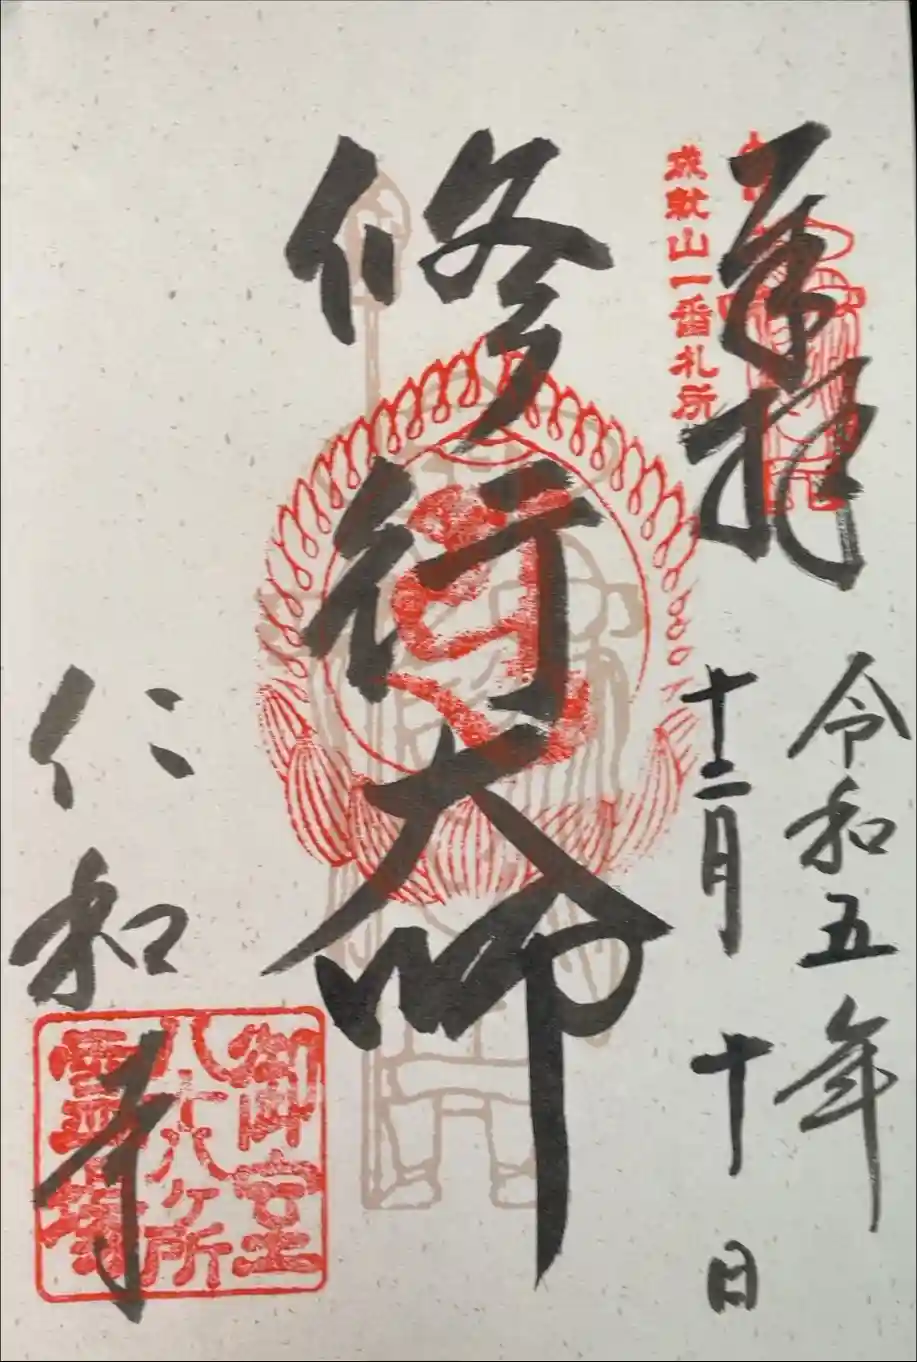 奉拝
令和五年
十二月十日
成就山一番札所
修行大師
仁和寺
御室
八十八ヶ所
霊場